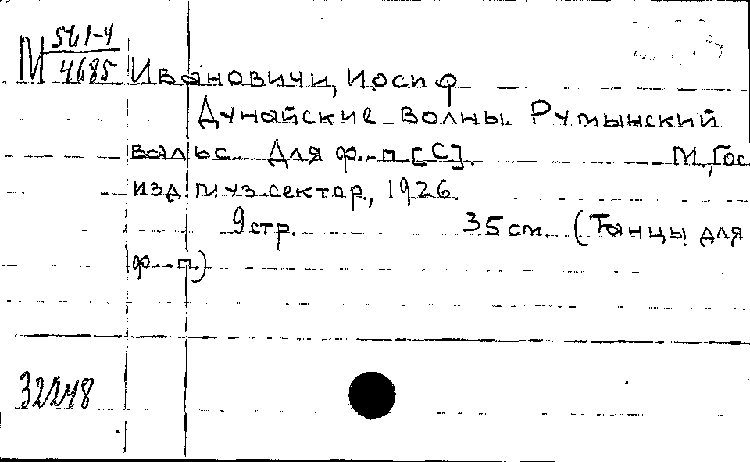 М 561-4
4685
Ивановичи, Иосиф
Дунайские волны. Румынский
вальс. Для ф.-п [С]. М., Гос.
изд муз.сектор, 1926
9 стр. 35 см. (Танцы для
ф.-п.)